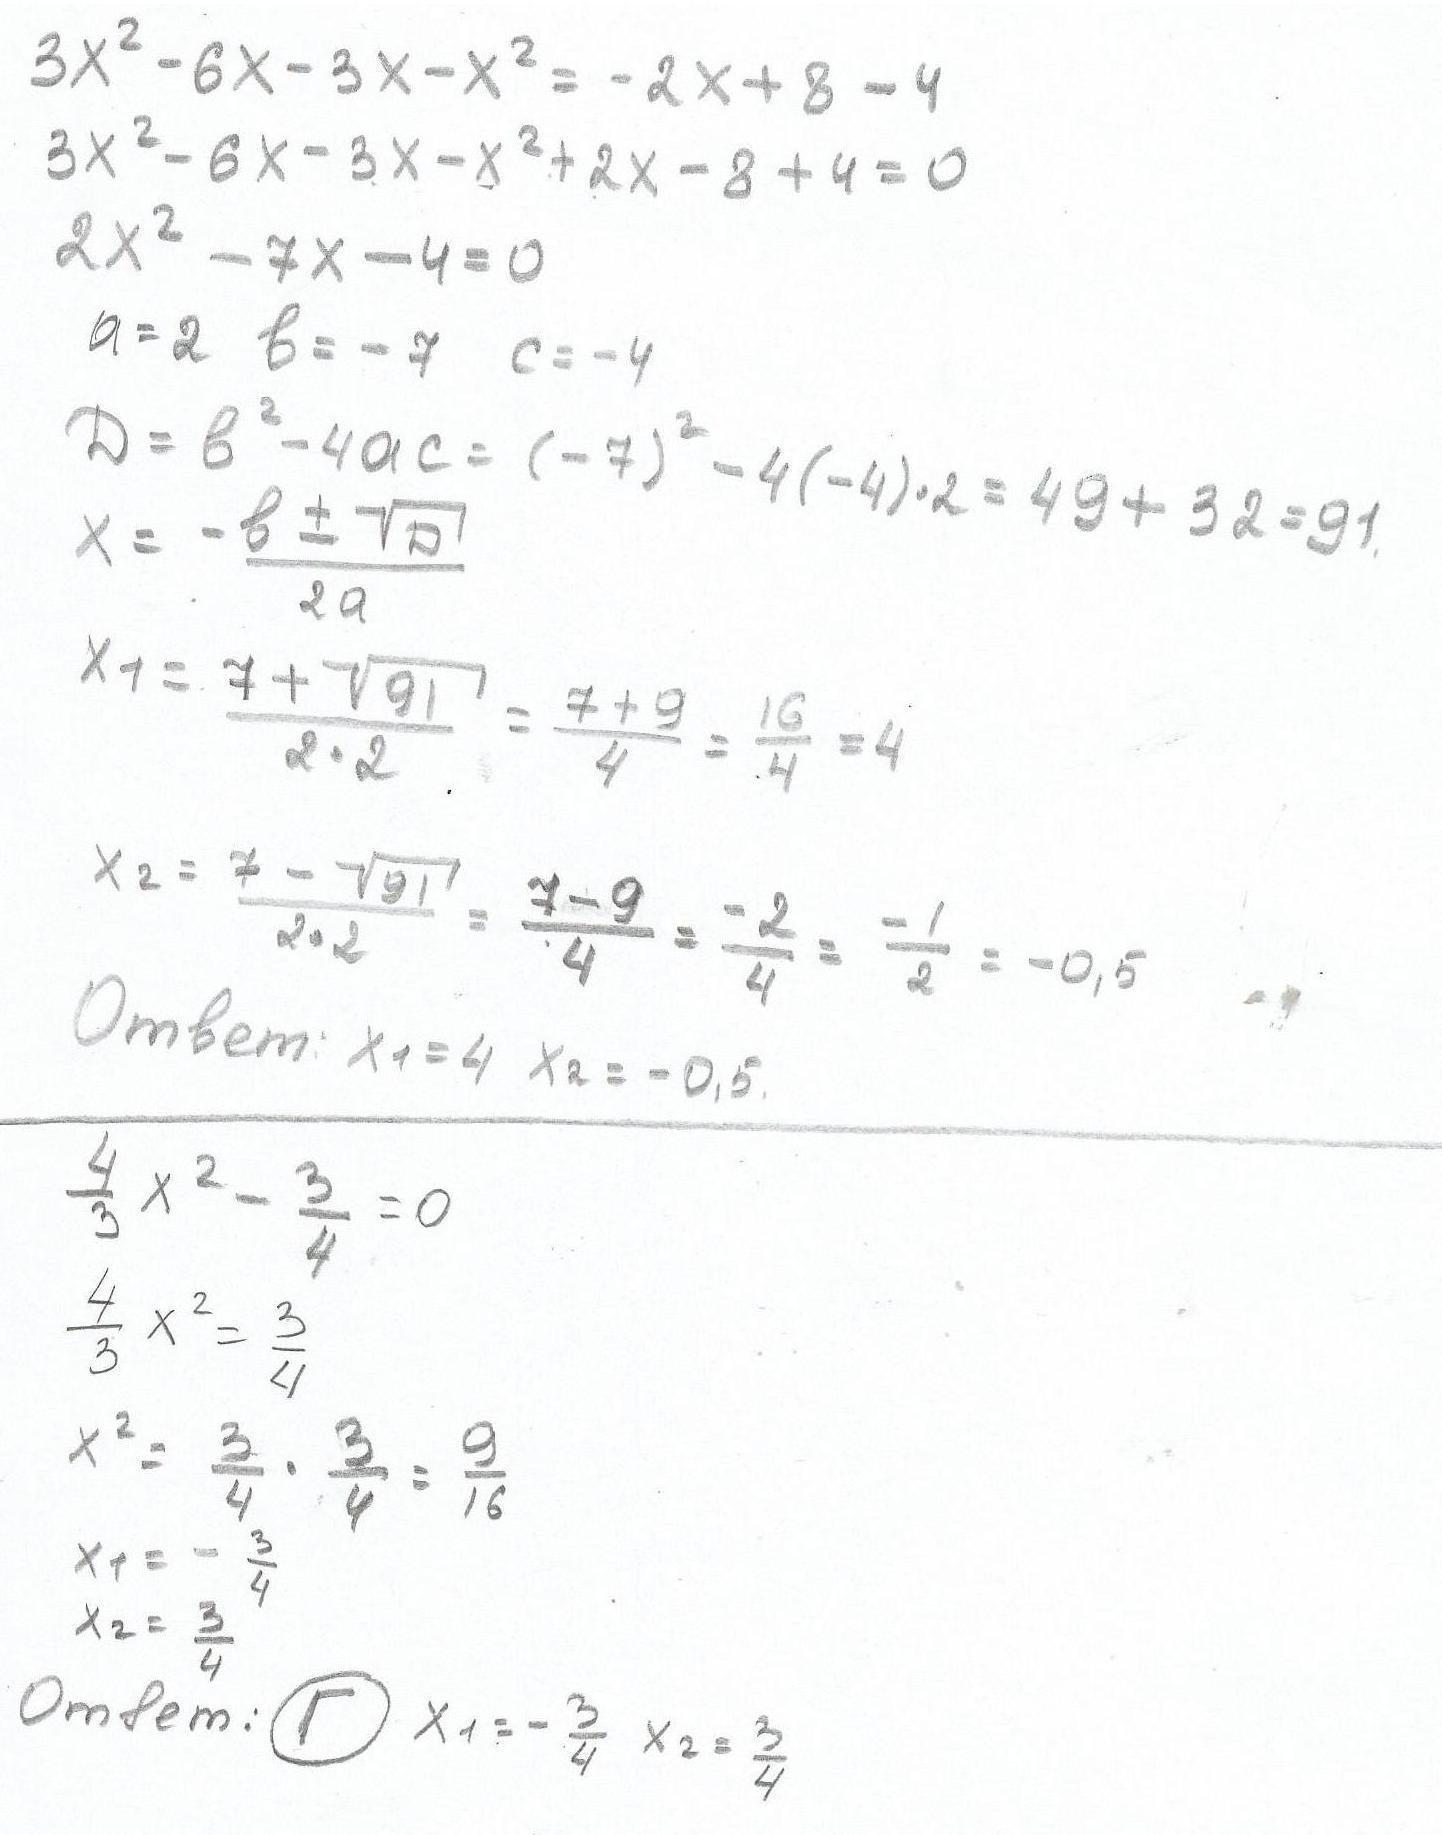 3x² - 6x - 3x - x² = -2x + 8 - 4
3x² - 6x - 3x - x² + 2x - 8 + 4 = 0
2x² - 7x - 4 = 0
a = 2 в = -7 c = -4
D = в² - 4ac = (-7)² - 4(-4)·2 = 49 + 32 = 91.
x = -в ± √D / 2a
x1 = 7 + √91 / 2·2 = 7+9 / 4 = 16/4 = 4
x2 = 7 - √91 / 2·2 = 7-9 / 4 = -2/4 = -1/2 = -0,5
Ответ: x1 = 4 x2 = -0,5.
4/3 x² - 3/4 = 0
4/3 x² = 3/4
x² = 3/4 · 3/4 = 9/16
x1 = - 3/4
x2 = 3/4
Ответ: Г x1 = - 3/4 x2 = 3/4